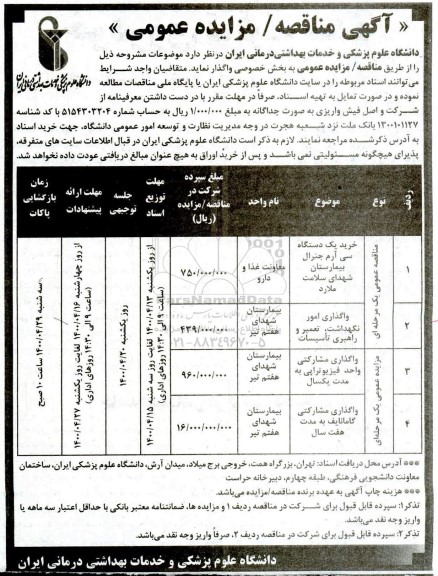 « آگهی مناقصه/ مزایده عمومی »
دانشگاه علوم پزشکی و خدمات بهداشتی‌درمانی ایران در نظر دارد موضوعات مشروحه ذیل
را از طریق مناقصه/ مزایده عمومی به بخش خصوصی واگذار نماید. متقاضیان واجد شرایط
می‌توانند اسناد مربوطه را در سایت دانشگاه علوم پزشکی ایران یا پایگاه ملی مناقصات مطالعه
نموده و در صورت تمایل به تهیه اسناد، صرفاً در مهلت مقرر با در دست داشتن معرفینامه از
شرکت و اصل فیش واریزی به صورت جداگانه به مبلغ ۱/۰۰۰/۰۰۰ ریال به حساب شماره ۵۱۵۴۳۰۳۲۰۴ با کد شناسه
۱۳۰۰۱۰۱۱۲۷ بانک ملت نزد شعبه هجرت در وجه مدیریت نظارت و توسعه امور عمومی دانشگاه، جهت خرید اسناد
به آدرس ذکرشده مراجعه نمایند. لازم به ذکر است دانشگاه علوم پزشکی ایران در قبال اطلاعات سایت های متفرقه،
پذیرای هیچگونه مسئولیتی نمی باشد و پس از خرید اوراق به هیچ عنوان مبالغ دریافتی عودت داده نخواهد شد.
ردیف نوع موضوع نام واحد مبلغ سپرده شرکت در مناقصه/مزایده (ریال) مهلت توزیع اسناد جلسه توجیهی مهلت ارائه پیشنهادات زمان بازگشایی پاکات
۱ مناقصه عمومی یک مرحله ای خرید یک دستگاه سی آرم جنرال بیمارستان شهدای سلامت ملارد معاونت غذا و دارو ۷۵۰/۰۰۰/۰۰۰
۲ واگذاری امور نگهداشت، تعمیر و راهبری تأسیسات بیمارستان شهدای هفتم تیر ۴۳۹/۰۰۰/۰۰۰
۳ مزایده عمومی یک مرحله‌ای واگذاری مشارکتی واحد فیزیوتراپی به مدت یکسال بیمارستان شهدای هفتم تیر ۹۶۰/۰۰۰/۰۰۰
۴ واگذاری مشارکتی گامانایف به مدت هفت سال بیمارستان شهدای هفتم تیر ۱۶/۰۰۰/۰۰۰/۰۰۰
از روز یکشنبه ۱۴۰۰/۰۴/۱۳ لغایت روز سه شنبه ۱۴۰۰/۰۴/۱۵ (ساعت ۹ الی ۱۴:۳۰ روزهای اداری)
روز یکشنبه ۱۴۰۰/۰۴/۲۰
از روز چهارشنبه ۱۴۰۰/۰۴/۱۶ لغایت روز یکشنبه ۱۴۰۰/۰۴/۲۷ (ساعت ۹ الی ۱۴:۳۰ روزهای اداری)
سه شنبه ۱۴۰۰/۰۴/۲۹ ساعت ۱۰ صبح
ParsNamadData
۰۲۱-۸۸۳۴۹۶۷۰-۵
*** آدرس محل دریافت اسناد: تهران، بزرگراه همت، خروجی برج میلاد، میدان آرش، دانشگاه علوم پزشکی ایران، ساختمان
معاونت دانشجویی فرهنگی، طبقه چهارم، دبیرخانه حراست
*** هزینه چاپ آگهی به عهده برنده مناقصه/مزایده می‌باشد.
تذکر۱: سپرده قابل قبول برای شرکت در مناقصه ردیف ۱ و مزایده ها، ضمانتنامه معتبر بانکی با حداقل اعتبار سه ماهه یا
واریز وجه نقد می‌باشد.
تذکر۲: سپرده قابل قبول برای شرکت در مناقصه ردیف ۲، صرفاً واریز وجه نقد می‌باشد.
دانشگاه علوم پزشکی و خدمات بهداشتی درمانی ایران